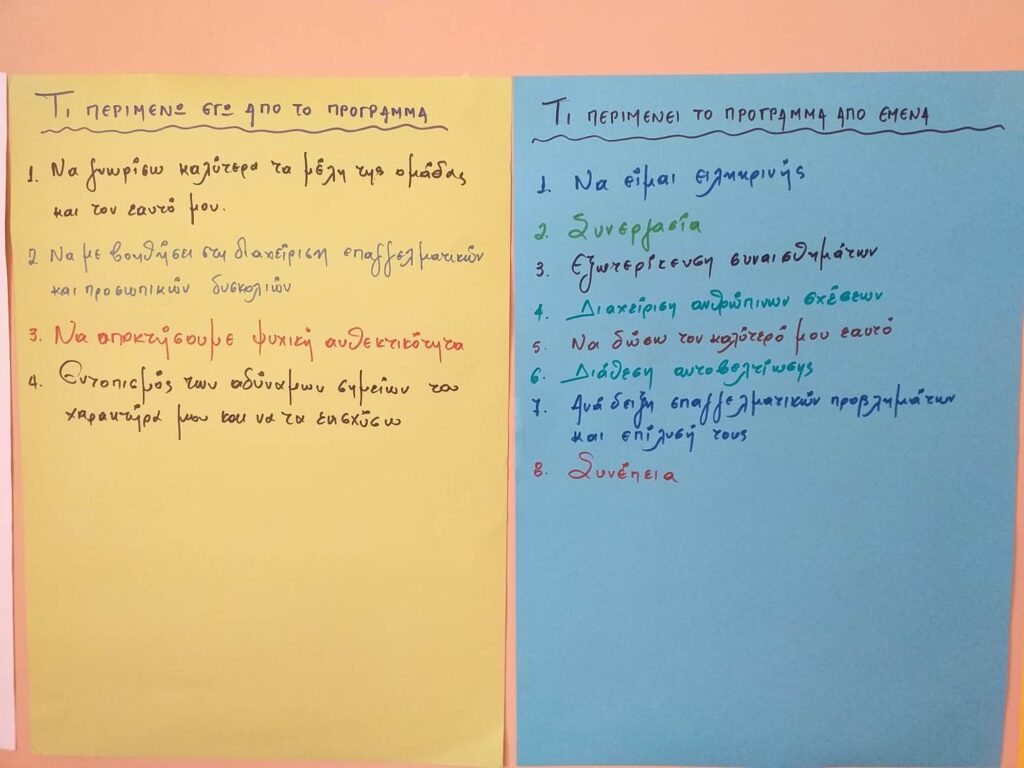 Τι ΠΕΡΙΜΕΝΩ ΕΓΩ ΑΠΟ ΤΟ ΠΡΟΓΡΑΜΜΑ
1. Να γνωρίσω καλύτερα τα μέλη της ομάδας
και τον εαυτό μου.
2. Να με βοηθήσει στη διαχείριση επαγγελματικών
και προσωπικών δυσκολιών
3. Να αποκτήσουμε ψυχική ανθεκτικότητα
4. Εντοπισμός των αδύναμων σημείων του
χαρακτήρα μου και να τα ενισχύσω
Τι ΠΕΡΙΜΕΝΕΙ ΤΟ ΠΡΟΓΡΑΜΜΑ ΑΠΟ ΕΜΕΝΑ
1. Να είμαι ειληκρινής
2. Συνεργασία
3. Εξωτερίκευση συναισθημάτων
4. Διαχείριση ανθρώπινων σχέσεων
5. Να δώσω τον καλύτερό μου εαυτό
6. Διάθεση αυτοβελτίωσης
7. Ανάδειξη επαγγελματικών προβλημάτων
και επίλυσή τους
8. Συνέπεια